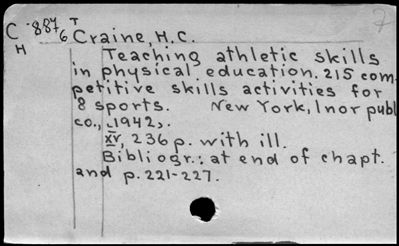 C 887/6 T Craine, H.C.
H
Teaching athletic skills
in physical education. 215 com-
petitive skills activities for
8 sports. New York, Inor publ.
co., 1942.
XV, 236 p. with ill.
Bibliogr.: at end of chapt.
and p. 221-227.